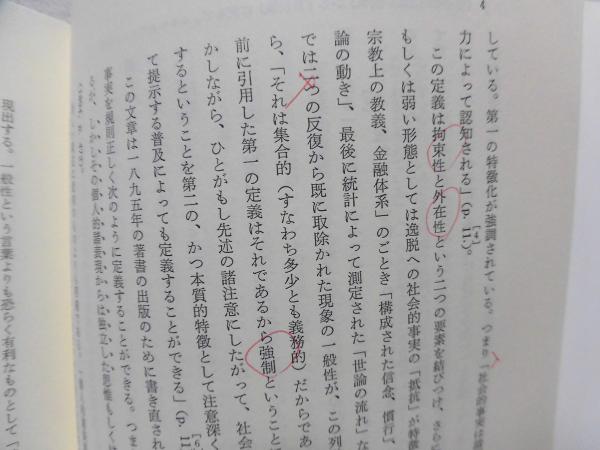 4
している。第一の特徴化が強調されている。つまり「社会的事実は
力によって認知される」(p. 11.)。[4]
この定義は拘束性と外在性という二つの要素を結びつけ、さら
もしくは弱い形態としては逸脱への社会的事実の「抵抗」が特徴
宗教上の教義、金融体系」のごとき「構成された信念、慣行」、
論の動き」、最後に統計によって測定された「世論の流れ」な
では二つの反復から既に取除かれた現象の一般性が、この列
ら、「それは集合的(すなわち多少とも義務的)だからであ
前に引用した第一の定義はそれであるから強制ということ
かしながら、ひとがもし先述の諸注意にしたがって、社会
するということを第二の、かつ本質的特徴として注意深く
て提示する普及によっても定義することができる」(p. 11 [6]
この文章は一八九五年の著書の出版のために書き直され
事実を規則正しく次のように定義することができる。つま
現出する。一般性という言葉よりも恐らく有利なものとして「